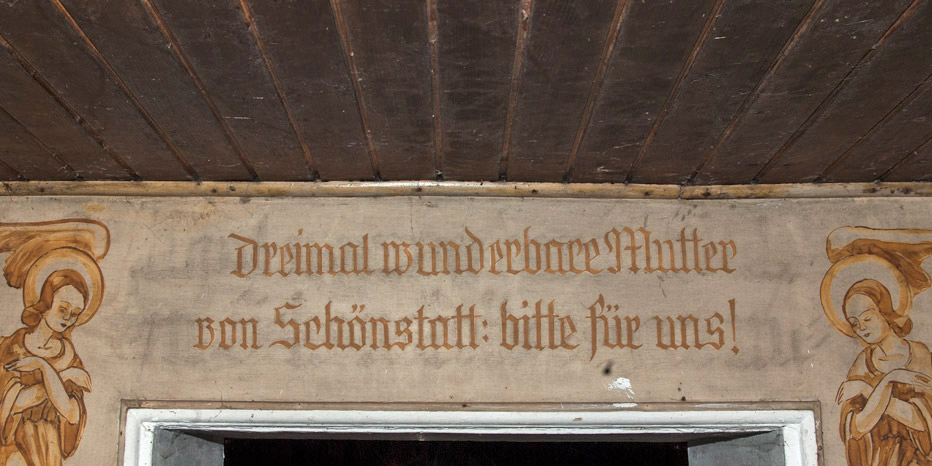 Dreimal wunderbare Mutter
von Schönstatt: bitte für uns!